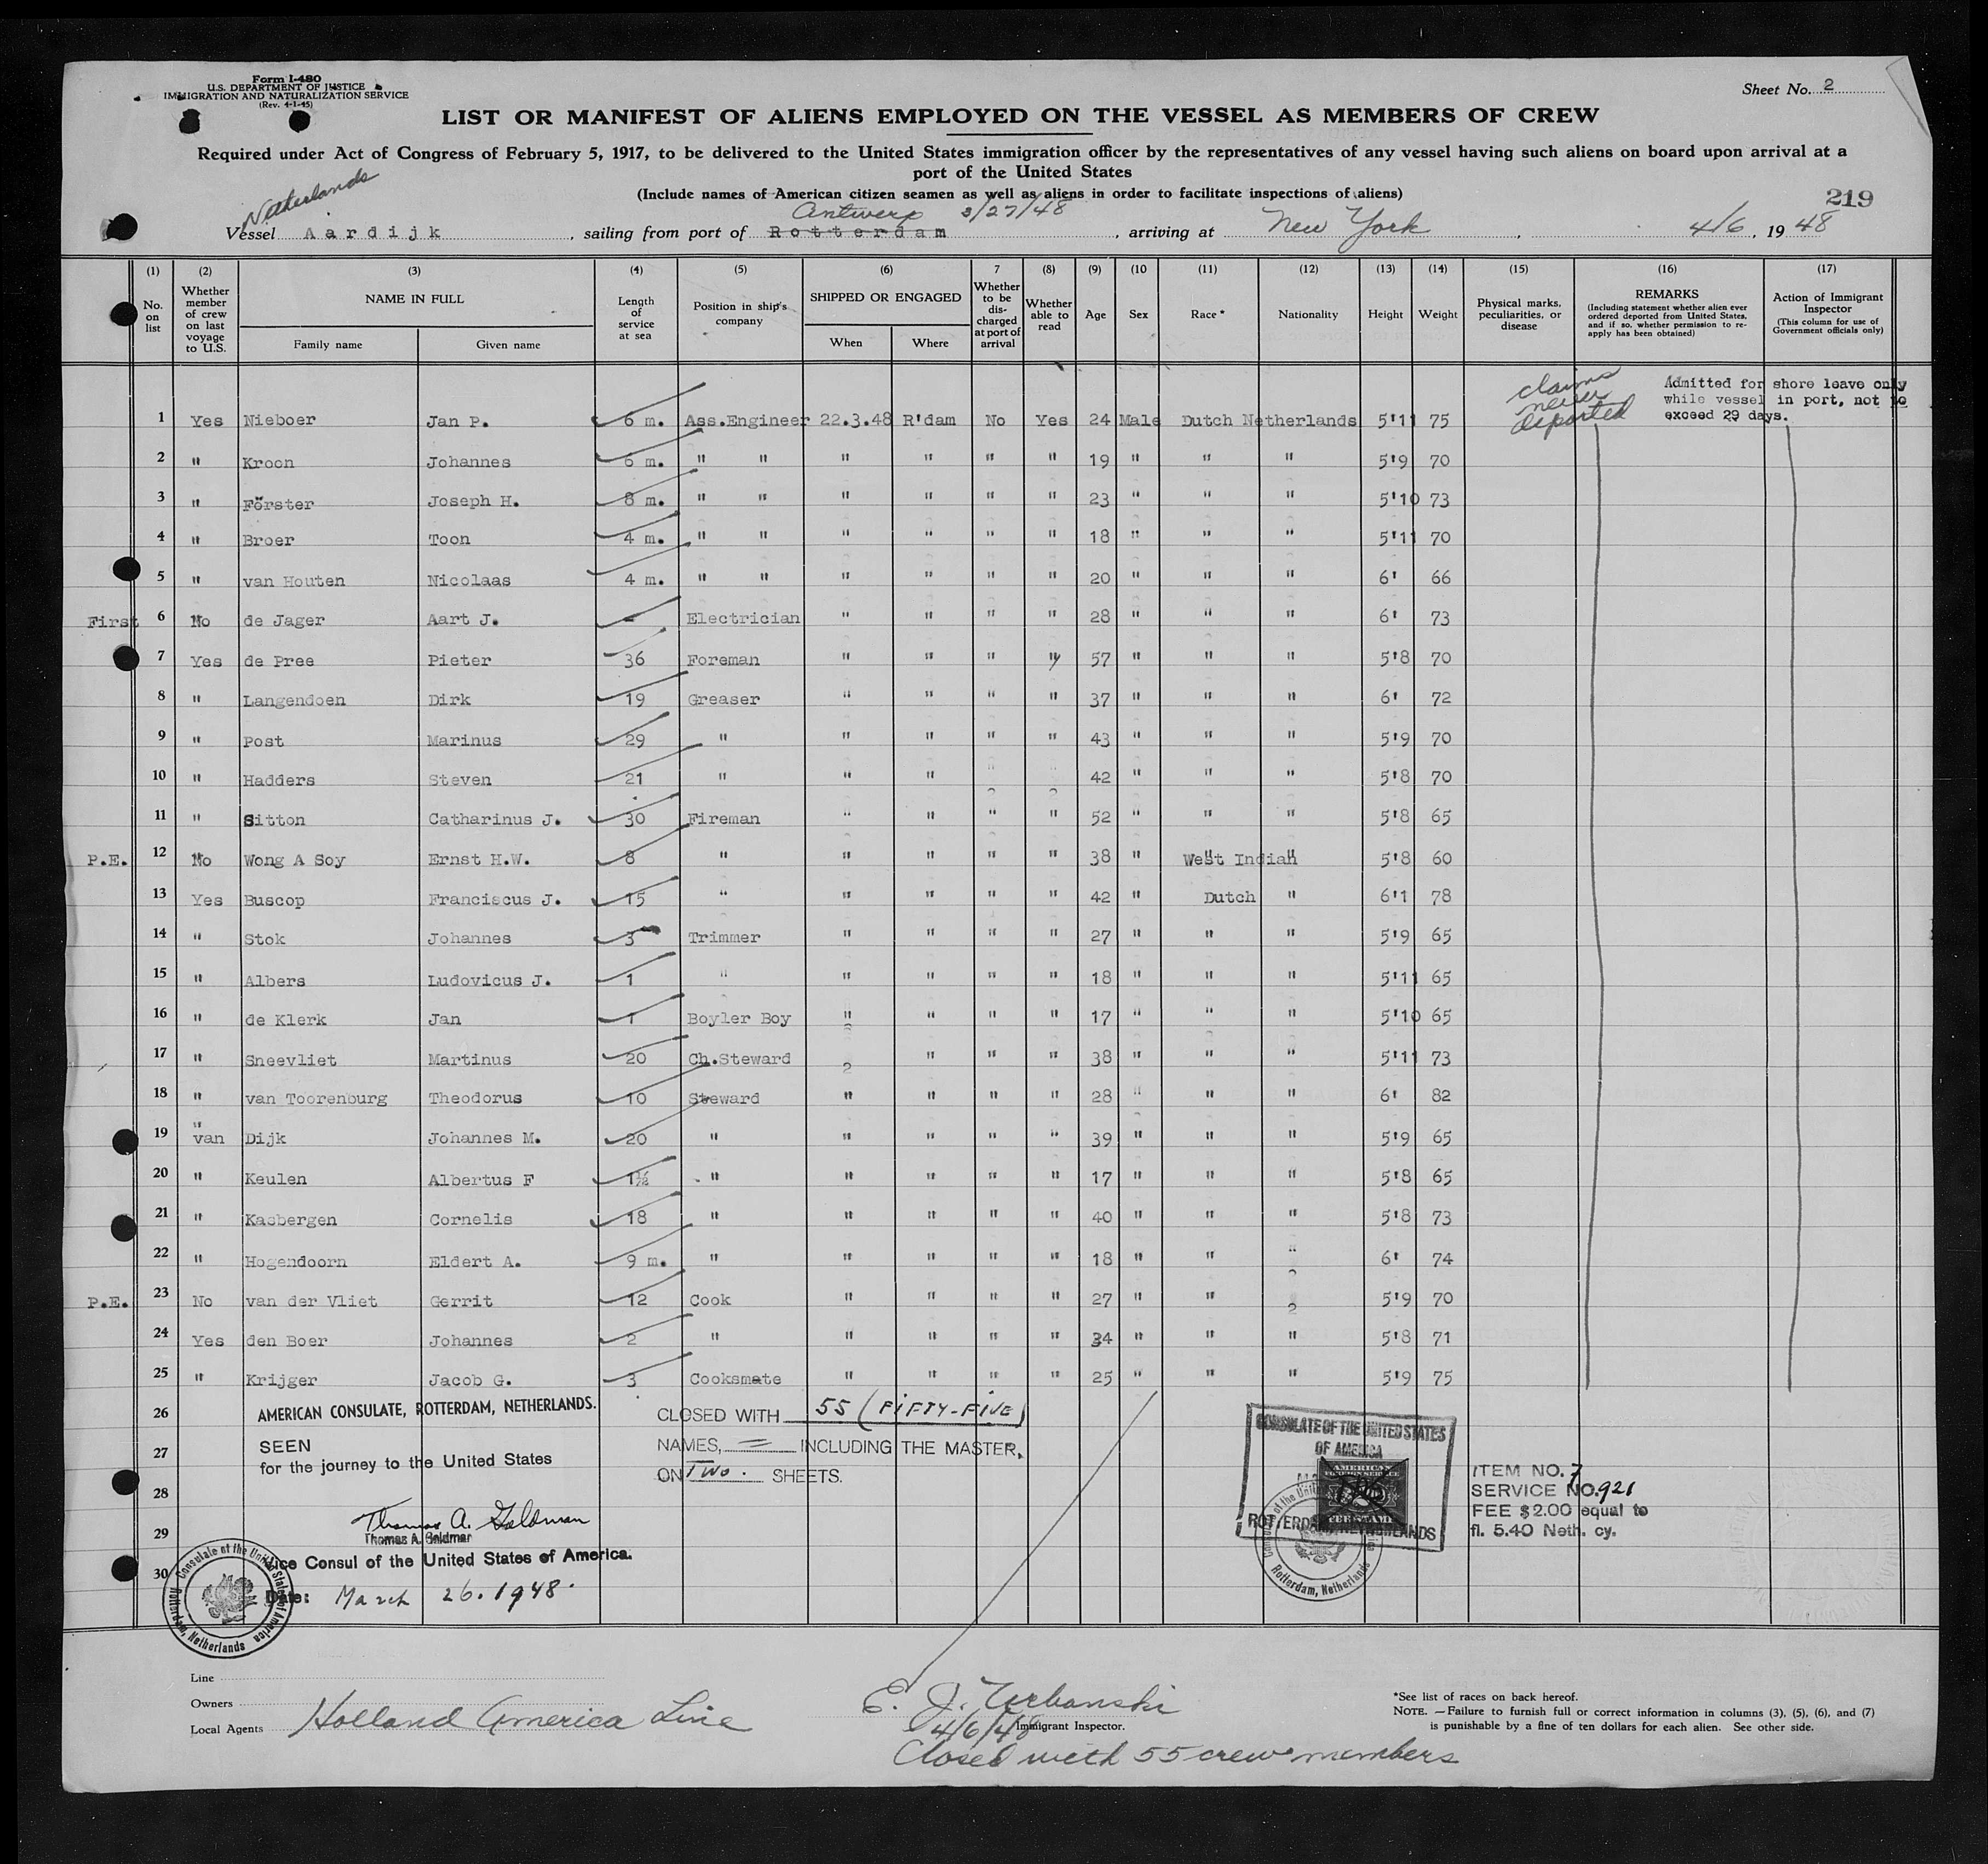 Form I-480
U.S. DEPARTMENT OF JUSTICE
IMMIGRATION AND NATURALIZATION SERVICE
(Rev. 4-1-45)
Sheet No. 2
LIST OR MANIFEST OF ALIENS EMPLOYED ON THE VESSEL AS MEMBERS OF CREW
Required under Act of Congress of February 5, 1917, to be delivered to the United States immigration officer by the representatives of any vessel having such aliens on board upon arrival at a
port of the United States
(Include names of American citizen seamen as well as aliens in order to facilitate inspections of aliens)
219
Netherlands
Antwerp 3/27/48
Vessel Aardijk, sailing from port of Rotterdam, arriving at New York, 4/6, 1948
(1) (2) (3) (4) (5) (6) 7 (8) (9) (10 (11) (12) (13) (14) (15) (16) (17)
No. on list | Whether member of crew on last voyage to U.S. | NAME IN FULL | Family name | Given name | Length of service at sea | Position in ship's company | SHIPPED OR ENGAGED | When | Where | Whether to be discharged at port of arrival | Whether able to read | Age | Sex | Race* | Nationality | Height | Weight | Physical marks, peculiarities, or disease | REMARKS (Including statement whether alien ever ordered deported from United States, and if so, whether permission to re-apply has been obtained) | Action of Immigrant Inspector (This column for use of Government officials only)
claims never deported
Admitted for shore leave only
while vessel in port, not to
exceed 29 days.
1 Yes Nieboer Jan P. 6 m. Ass.Engineer 22.3.48 R'dam No Yes 24 Male Dutch Netherlands 5'11 75
2 " Kroon Johannes 6 m. " " " " " " 19 " " " 5'9 70
3 " Förster Joseph H. 8 m. " " " " " " 23 " " " 5'10 73
4 " Broer Toon 4 m. " " " " " " 18 " " " 5'11 70
5 " van Houten Nicolaas 4 m. " " " " " " 20 " " " 6' 66
First 6 No de Jager Aart J. - Electrician " " " " 28 " " " 6' 73
7 Yes de Pree Pieter 36 Foreman " " " " 57 " " " 5'8 70
8 " Langendoen Dirk 19 Greaser " " " " 37 " " " 6' 72
9 " Post Marinus 29 " " " " " 43 " " " 5'9 70
10 " Hadders Steven 21 " " " " " 42 " " " 5'8 70
11 " Sitton Catharinus J. 30 Fireman " " " " 52 " " " 5'8 65
P.E. 12 No Wong A Soy Ernst H.W. 8 " " " " " 38 " West Indian " 5'8 60
13 Yes Buscop Franciscus J. 15 " " " " " 42 " Dutch " 6'1 78
14 " Stok Johannes 3 Trimmer " " " " 27 " " " 5'9 65
15 " Albers Ludovicus J. 1 " " " " " 18 " " " 5'11 65
16 " de Klerk Jan 1 Boyler Boy " " " " 17 " " " 5'10 65
17 " Sneevliet Martinus 20 Ch.Steward " " " 38 " " " 5'11 73
18 " van Toorenburg Theodorus 10 Steward " " " " 28 " " " 6' 82
19 " van Dijk Johannes M. 20 " " " " " 39 " " " 5'9 65
20 " Keulen Albertus F 1½ " " " " " 17 " " " 5'8 65
21 " Kasbergen Cornelis 18 " " " " " 40 " " " 5'8 73
22 " Hogendoorn Eldert A. 9 m. " " " " " 18 " " " 6' 74
P.E. 23 No van der Vliet Gerrit 12 Cook " " " " 27 " " 5'9 70
24 Yes den Boer Johannes 2 " " " " " 34 " " " 5'8 71
25 " Krijger Jacob G. 3 Cooksmate " " " " 25 " " " 5'9 75
26
27
28
29
30
AMERICAN CONSULATE, ROTTERDAM, NETHERLANDS.
SEEN
for the journey to the United States
Thomas A. Goldman
Thomas A. Goldman
Vice Consul of the United States of America.
Date: March 26. 1948.
Consulate of the United States of America
Rotterdam, Netherlands
CLOSED WITH 55 (FIFTY-FIVE)
NAMES, INCLUDING THE MASTER,
ON TWO. SHEETS.
CONSULATE OF THE UNITED STATES
OF AMERICA
AMERICAN
FOREIGN SERVICE
FEE STAMP
ROTTERDAM, NETHERLANDS
Rotterdam, Netherlands
ITEM NO. 7
SERVICE NO. 921
FEE $2.00 equal to
fl. 5.40 Neth. cy.
Line
Owners
Local Agents Holland America Line
E. J. Urbanski
4/6/48 Immigrant Inspector.
Closed with 55 crew members
*See list of races on back hereof.
NOTE.—Failure to furnish full or correct information in columns (3), (5), (6), and (7)
is punishable by a fine of ten dollars for each alien. See other side.